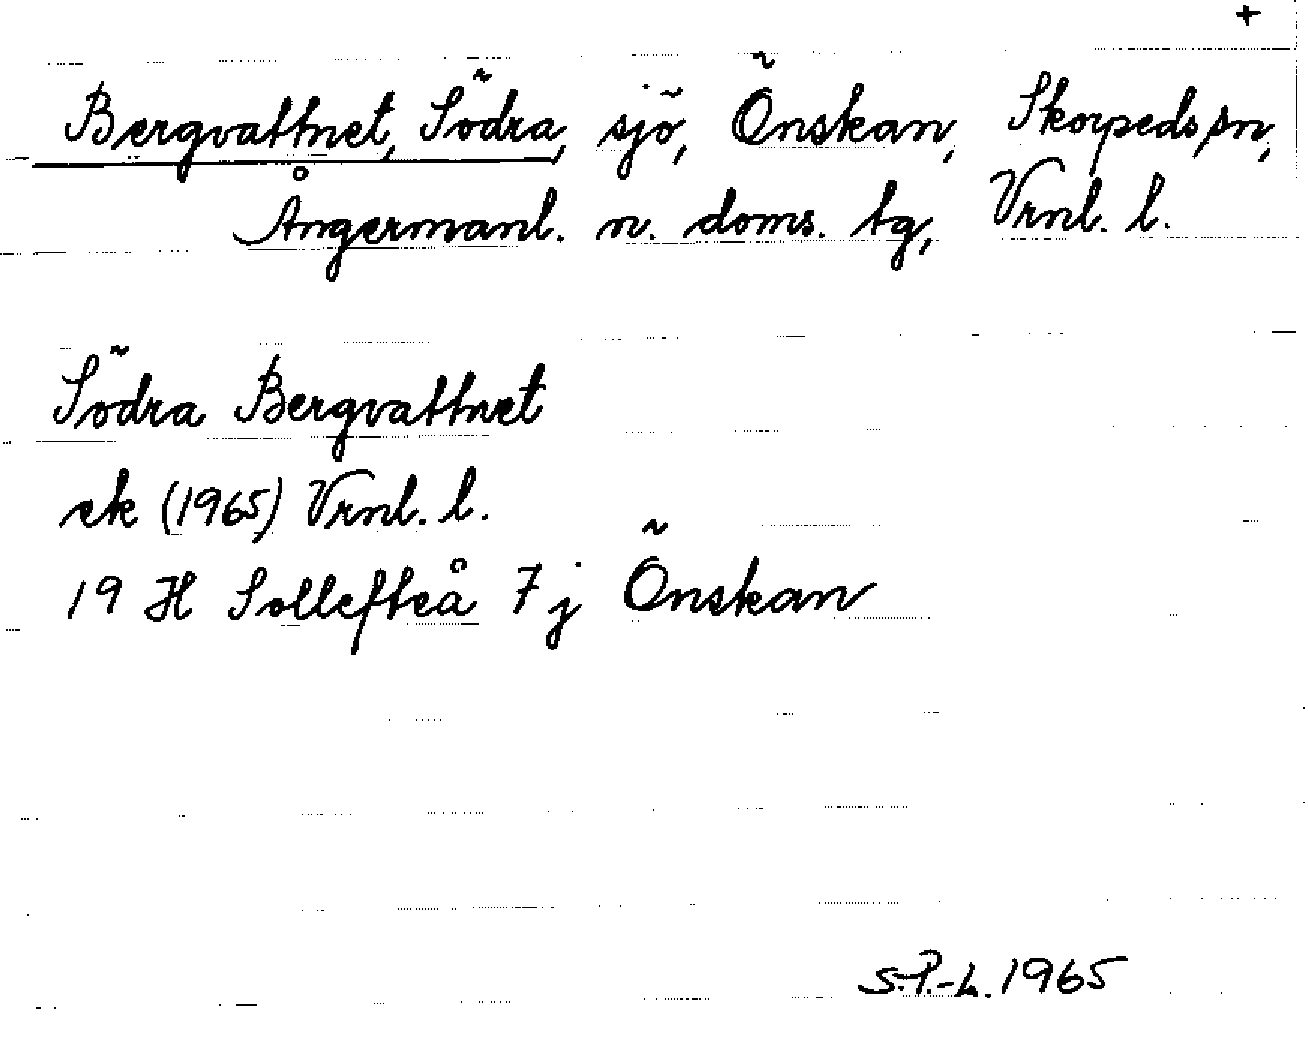 +
Bergvattnet, Södra, sjö, Önskan, Skorpeds sn,
Ångermanl. n. doms. tg, Vrnl. l.
Södra Bergvattnet
ek (1965) Vrnl. l.
19 H Sollefteå 7j Önskan
S.P.-L. 1965